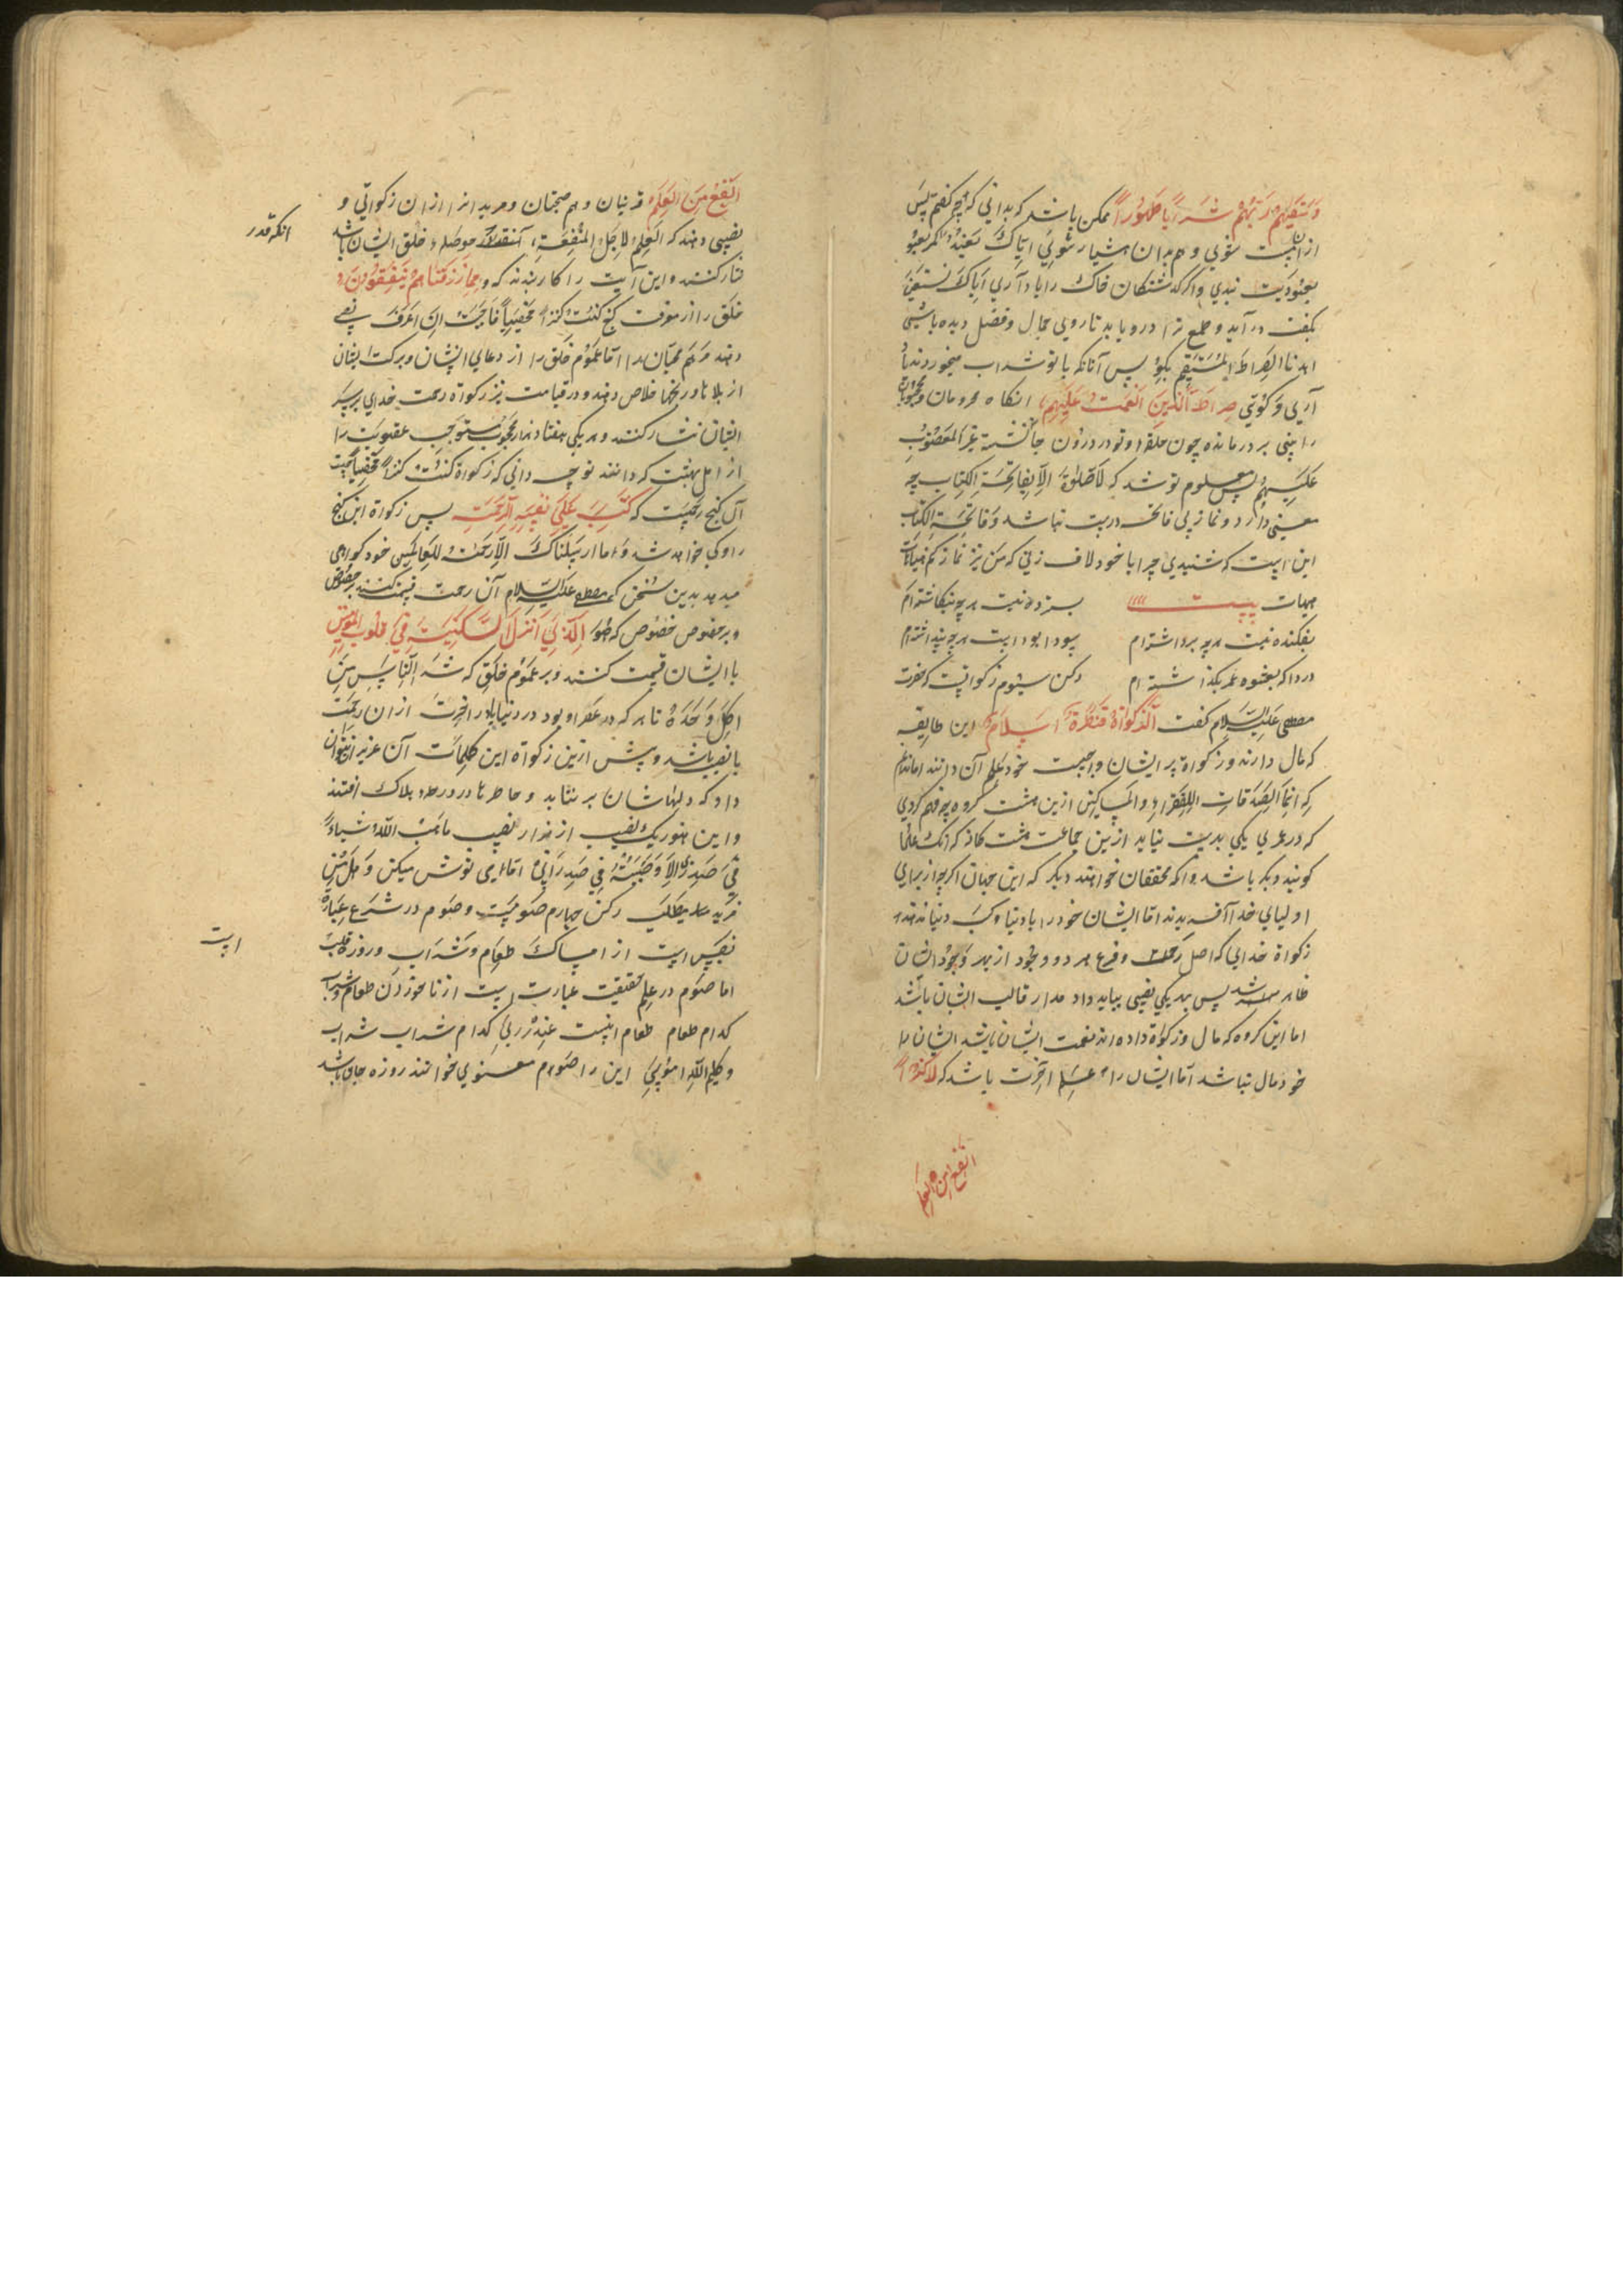 وَسَقَیهُم رَبُّهُم شَرَاباً طَهُوراً ممکن باشد که بدانی که چه گفتم پس
ازان مست شوی و هم بدان هشیار شوی اِیّاکَ نَعبُدُ کمر بعبو
بعبودیت بندی واگر گذشتکان خاک را یاد آری اِیّاکَ نَستَعینُ
بگفت درآید و طمع ترا دریابد تا روی جمال وفضل دیده باشی
اهدنا الصِّراطَ المُستَقیم بگو پس آنانکه با تو شراب میخوردند یاد
آری و گوئی صِراطَ الَّذینَ اَنعَمتَ عَلَیهِم انگاه محرومان و محجوبان
را بینی بر در مانده چون حلقه و تو در درون جا نشسته غیر المغضوب
عَلَیهِم پس معلوم تو شد که لاصلوة الا بفاتحة الکتاب چه
معنی دارد و نماز بی فاتحه درست نباشد و فاتحة الکتاب
این است که شنیدی چرا با خود لاف زنی که من نیز نماز کنم هیهات
هیهات بیت بستردنیست هرچه بنگاشته‌ام
بفکندنیست هرچه برداشته‌ام سودا بوداست هرچه پنداشته‌ام
دردا که بعشوه عمر بگذاشته‌ام رکن سیوم زکواتست که حضرت
مصطفی علیه السلام گفت الزکواة قنطرة الاسلام این طایفه
که مال دارند و زکواة بر ایشان واجبست خود علم آن دانند اما ندانم
که انما الصدقات للفقراء والمساکین ازین هشت گروه چه فهم کردی
که در عمری یکی بدست نیاید ازین جماعت هشت گانه که آنک علما
گویند دیگر باشد و آنکه محققان خواهند دیگر که این جهان اگرچه از برای
اولیای خدا آفریدند اما ایشان خود را با دنیا و کسب دنیا ندهند
زکواة خدایی که اصل رحمت و فرع هر دو وجود از بهر وجود ایشان
ظاهر شد پس هر یکی نصیبی بباید داد مدار قالب ایشان باشد
اما این گروه که مال و زکوة داده‌اند نعمت ایشان باشد ایشان را
خود مال نباشد اما ایشان را علم آخرت باشد که لاکنز
انفع من العلم
اَنفَعُ مِنَ العِلمِ قرینان و هم صحبتان و مریدانرا ازان زکواتی و
نصیبی دهند که العلم لاجل المنفعة آنقدر که حوصله خلق ایشان باشد
انکه قدر
نثار کنند و این آیت را کار بندند که و مِمّا رَزَقناهُم یُنفِقُونَ
خلق را از معرفت گنج کنتُ کنزاً مخفیاً فاحببت ان اعرف نصیبی
دهند مرهم محبان را اما عموم خلق را از دعای ایشان و برکت ایشان
از بلاها و رنجها خلاص دهند و در قیامت نیز زکواة رحمت خدای بر سر
ایشان نثار کنند و هر یکی هفتاد هزار محجوب مستوجب عقوبت را
از اهل بهشت گردانند تو چه دانی که زکواة کنتُ کنزاً مخفیاً چیست
آن گنج رحمتست که کَتَبَ عَلی نَفسِهِ الرَّحمَة پس زکواة این گنج
را وکی خواهد شد وَ ما ارسلناک الا رحمة للعالمین خود گواهی
میدهد بدین سخن که مصطفی علیه السلام آن رحمت قسمت کند برخصوص
و بر خصوص خصوص که هُوَ الَّذی اَنزَلَ السَّکینَةَ فی قُلُوبِ المُؤمِنینَ
با ایشان قسمت کنند و بر عموم خلق که شَرُّ الناس من
اکل وحده تا هر که در عصر او بود در دنیا یا در آخرت ازان رحمت
با نصیب باشد و بیش ازین زکواة این کلمات آن عزیز را نتوان
داد که دلهاشان برنتابد و خاطرها در ورطه هلاک افتند
و این هنوز یک نصیب از هزار نصیب ماصب الله شیئا
فی صدری الا وصببته فی صدر ابی بکر اما ای نوش میکن و هل من
مزید میطلب رکن چهارم صومست و صوم در شرع عبارة
نفس است از امساک طعام و شراب و روزه قالب
است
اما صوم در علم حقیقت عبارت است از ناخوردن طعام وشراب
کدام طعام طعام ابیت عند ربی کدام شراب شراب
و کلم الله موسی این را صوم معنوی خوانند روزه جان باشد